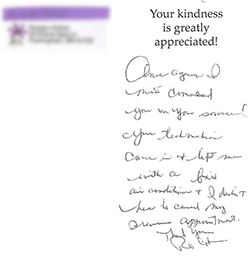 Your kindness
is greatly
appreciated!
Once again I
must commend
you on your service!
Your technician
came in & left me
with a fix
air condition & I didn't
have to cancel my
previous appointment.
Thank you